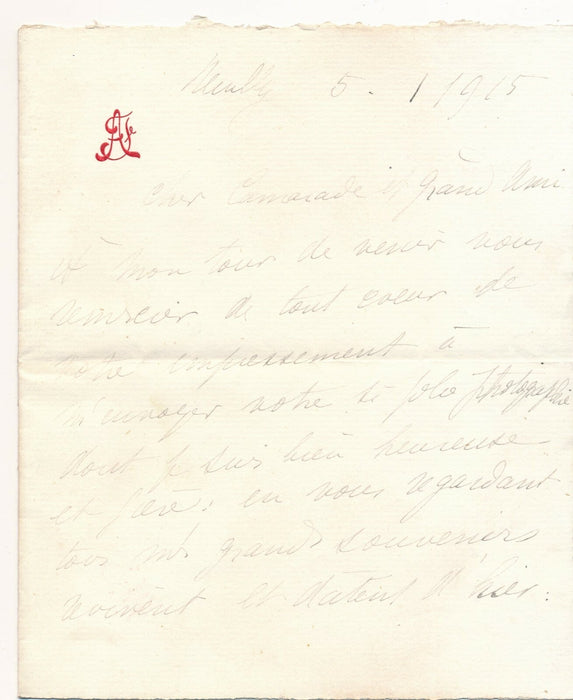 Neuilly 5. 1 1915
Cher Camarade et Grand Ami
A mon tour de venir vous
remercier de tout coeur de
votre empressement à
m'envoyer votre si jolie photographie
dont je suis bien heureuse
et fière, en vous regardant
tous mes grands souvenirs
revivent et datent d'hier.